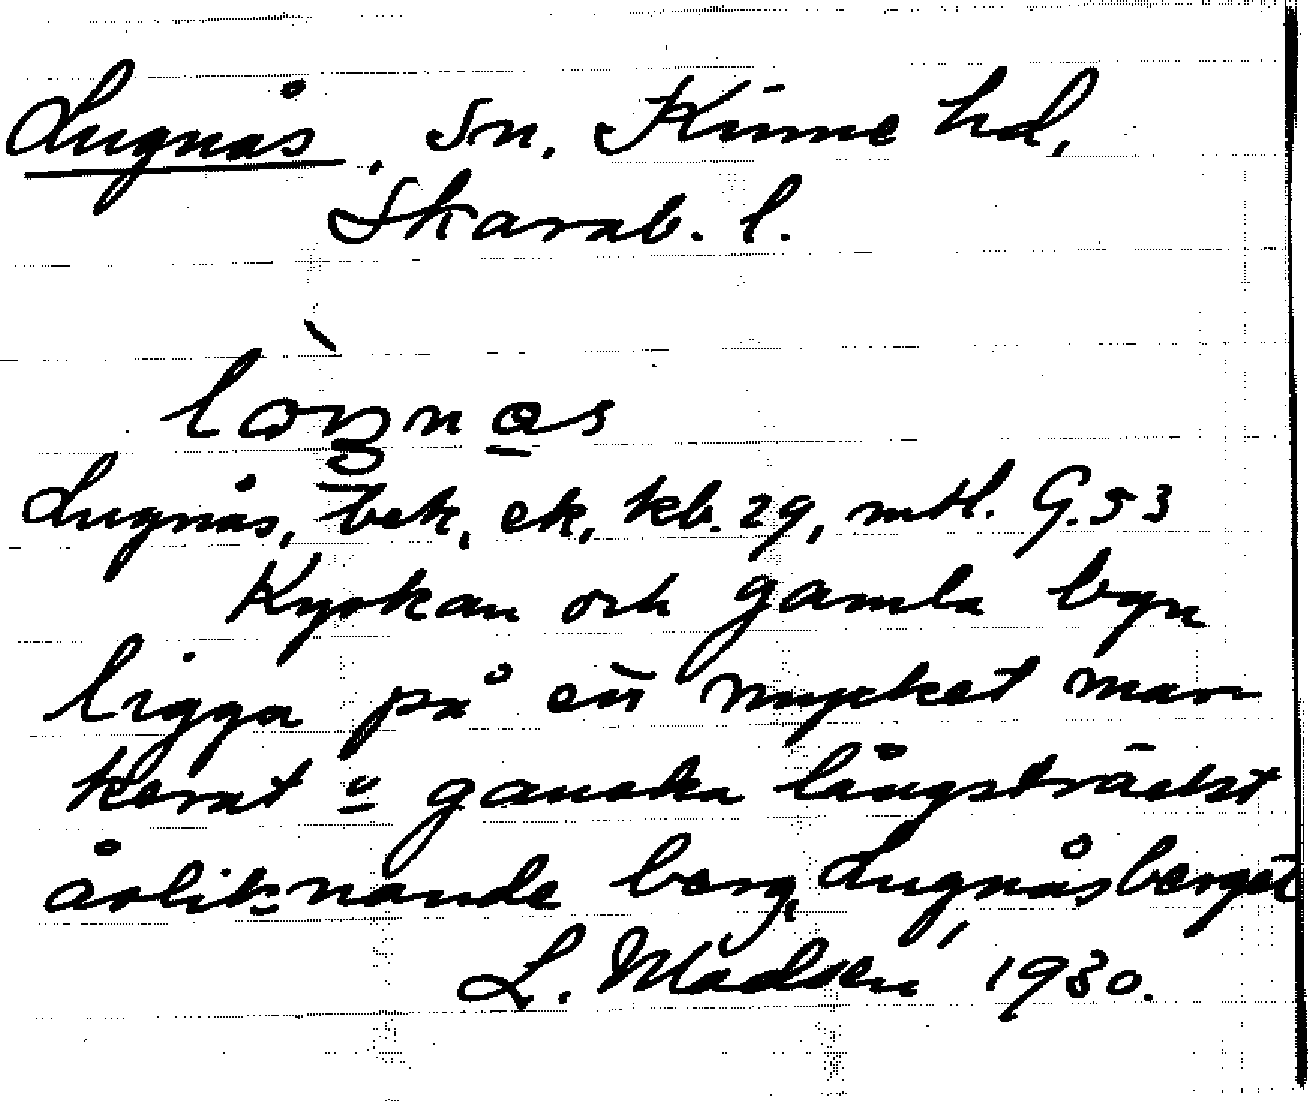 Lugnås, Sn. Kinne hd,
Skarab. l.
Lugnås, bek, ek, kb. 29, mtl. G. 53
Kyrkan och gamla byn
ligga på ett mycket mar-
kerat o ganska långsträckt
åsliknande berg, Lugnåsberget
L. Madsen, 1930.